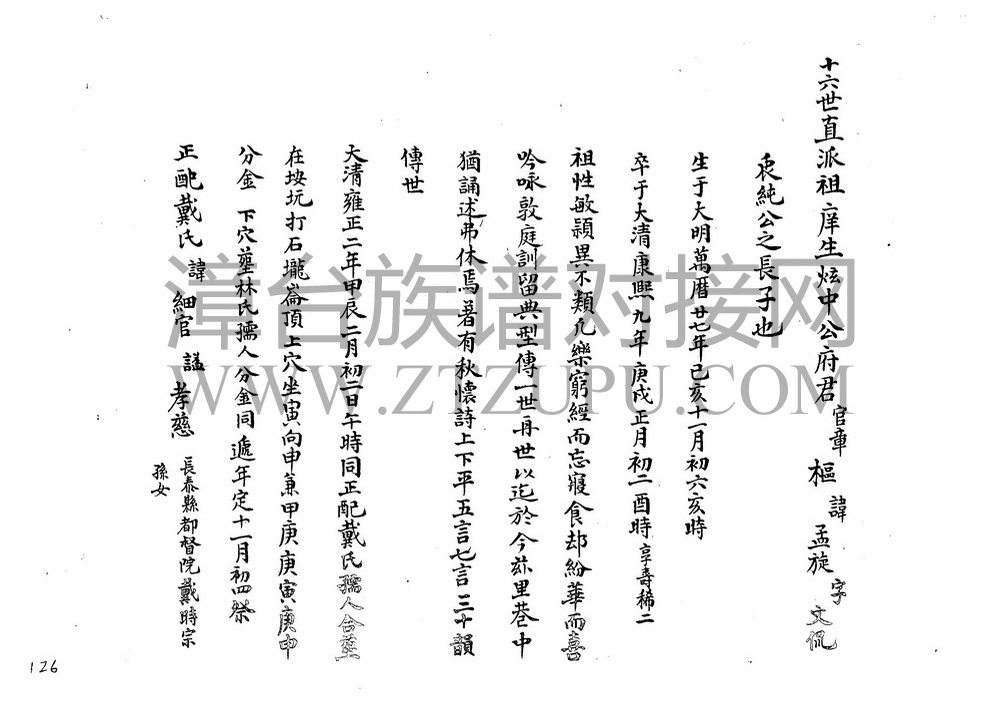 十六世直派祖庠生炫中公府君 官章 樞 諱 孟旋 字 文侃
衷純公之長子也
生于大明萬曆廿七年己亥十一月初六亥時
卒于大清康熙九年庚戌正月初二酉時 享壽稀二
祖性敏穎異不類凡樂窮經而忘寢食却紛華而喜
吟咏敦庭訓留典型傳一世再世以迄於今玆里巷中
猶誦述弗休焉著有秋懷詩上下平五言七言三十韻
傳世
大清雍正二年甲辰二月初二日午時同正配戴氏孺人合塟
在垵坑打石壠崙頂上穴坐寅向申兼甲庚庚寅庚申
分金 下穴塟林氏孺人分金同 遞年定十一月初四祭
正配戴氏 諱 細官 謚 孝慈 長泰縣都督院戴時宗
孫女
漳台族谱对接网
WWW.ZTZUPU.COM
126